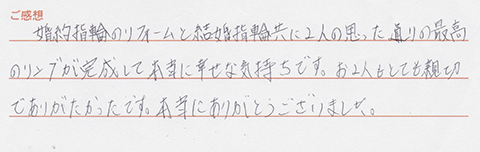 ご感想
婚約指輪のリフォームと結婚指輪共に2人の思った通りの最高
のリングが完成して本当に幸せな気持ちです。お2人もとても親切
でありがたかったです。本当にありがとうございました。